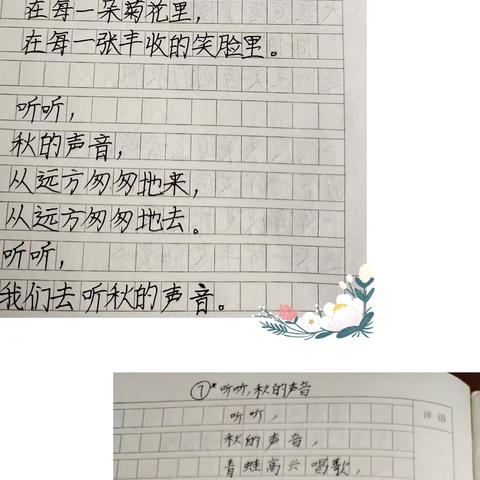 在每一朵菊花里,
在每一张丰收的笑脸里。
听听,
秋的声音,
从远方匆匆地来,
从远方匆匆地去。
听听,
我们去听秋的声音。
⑦*听听,秋的声音
听听,
评语
秋的声音,
青蛙高兴唱歌,